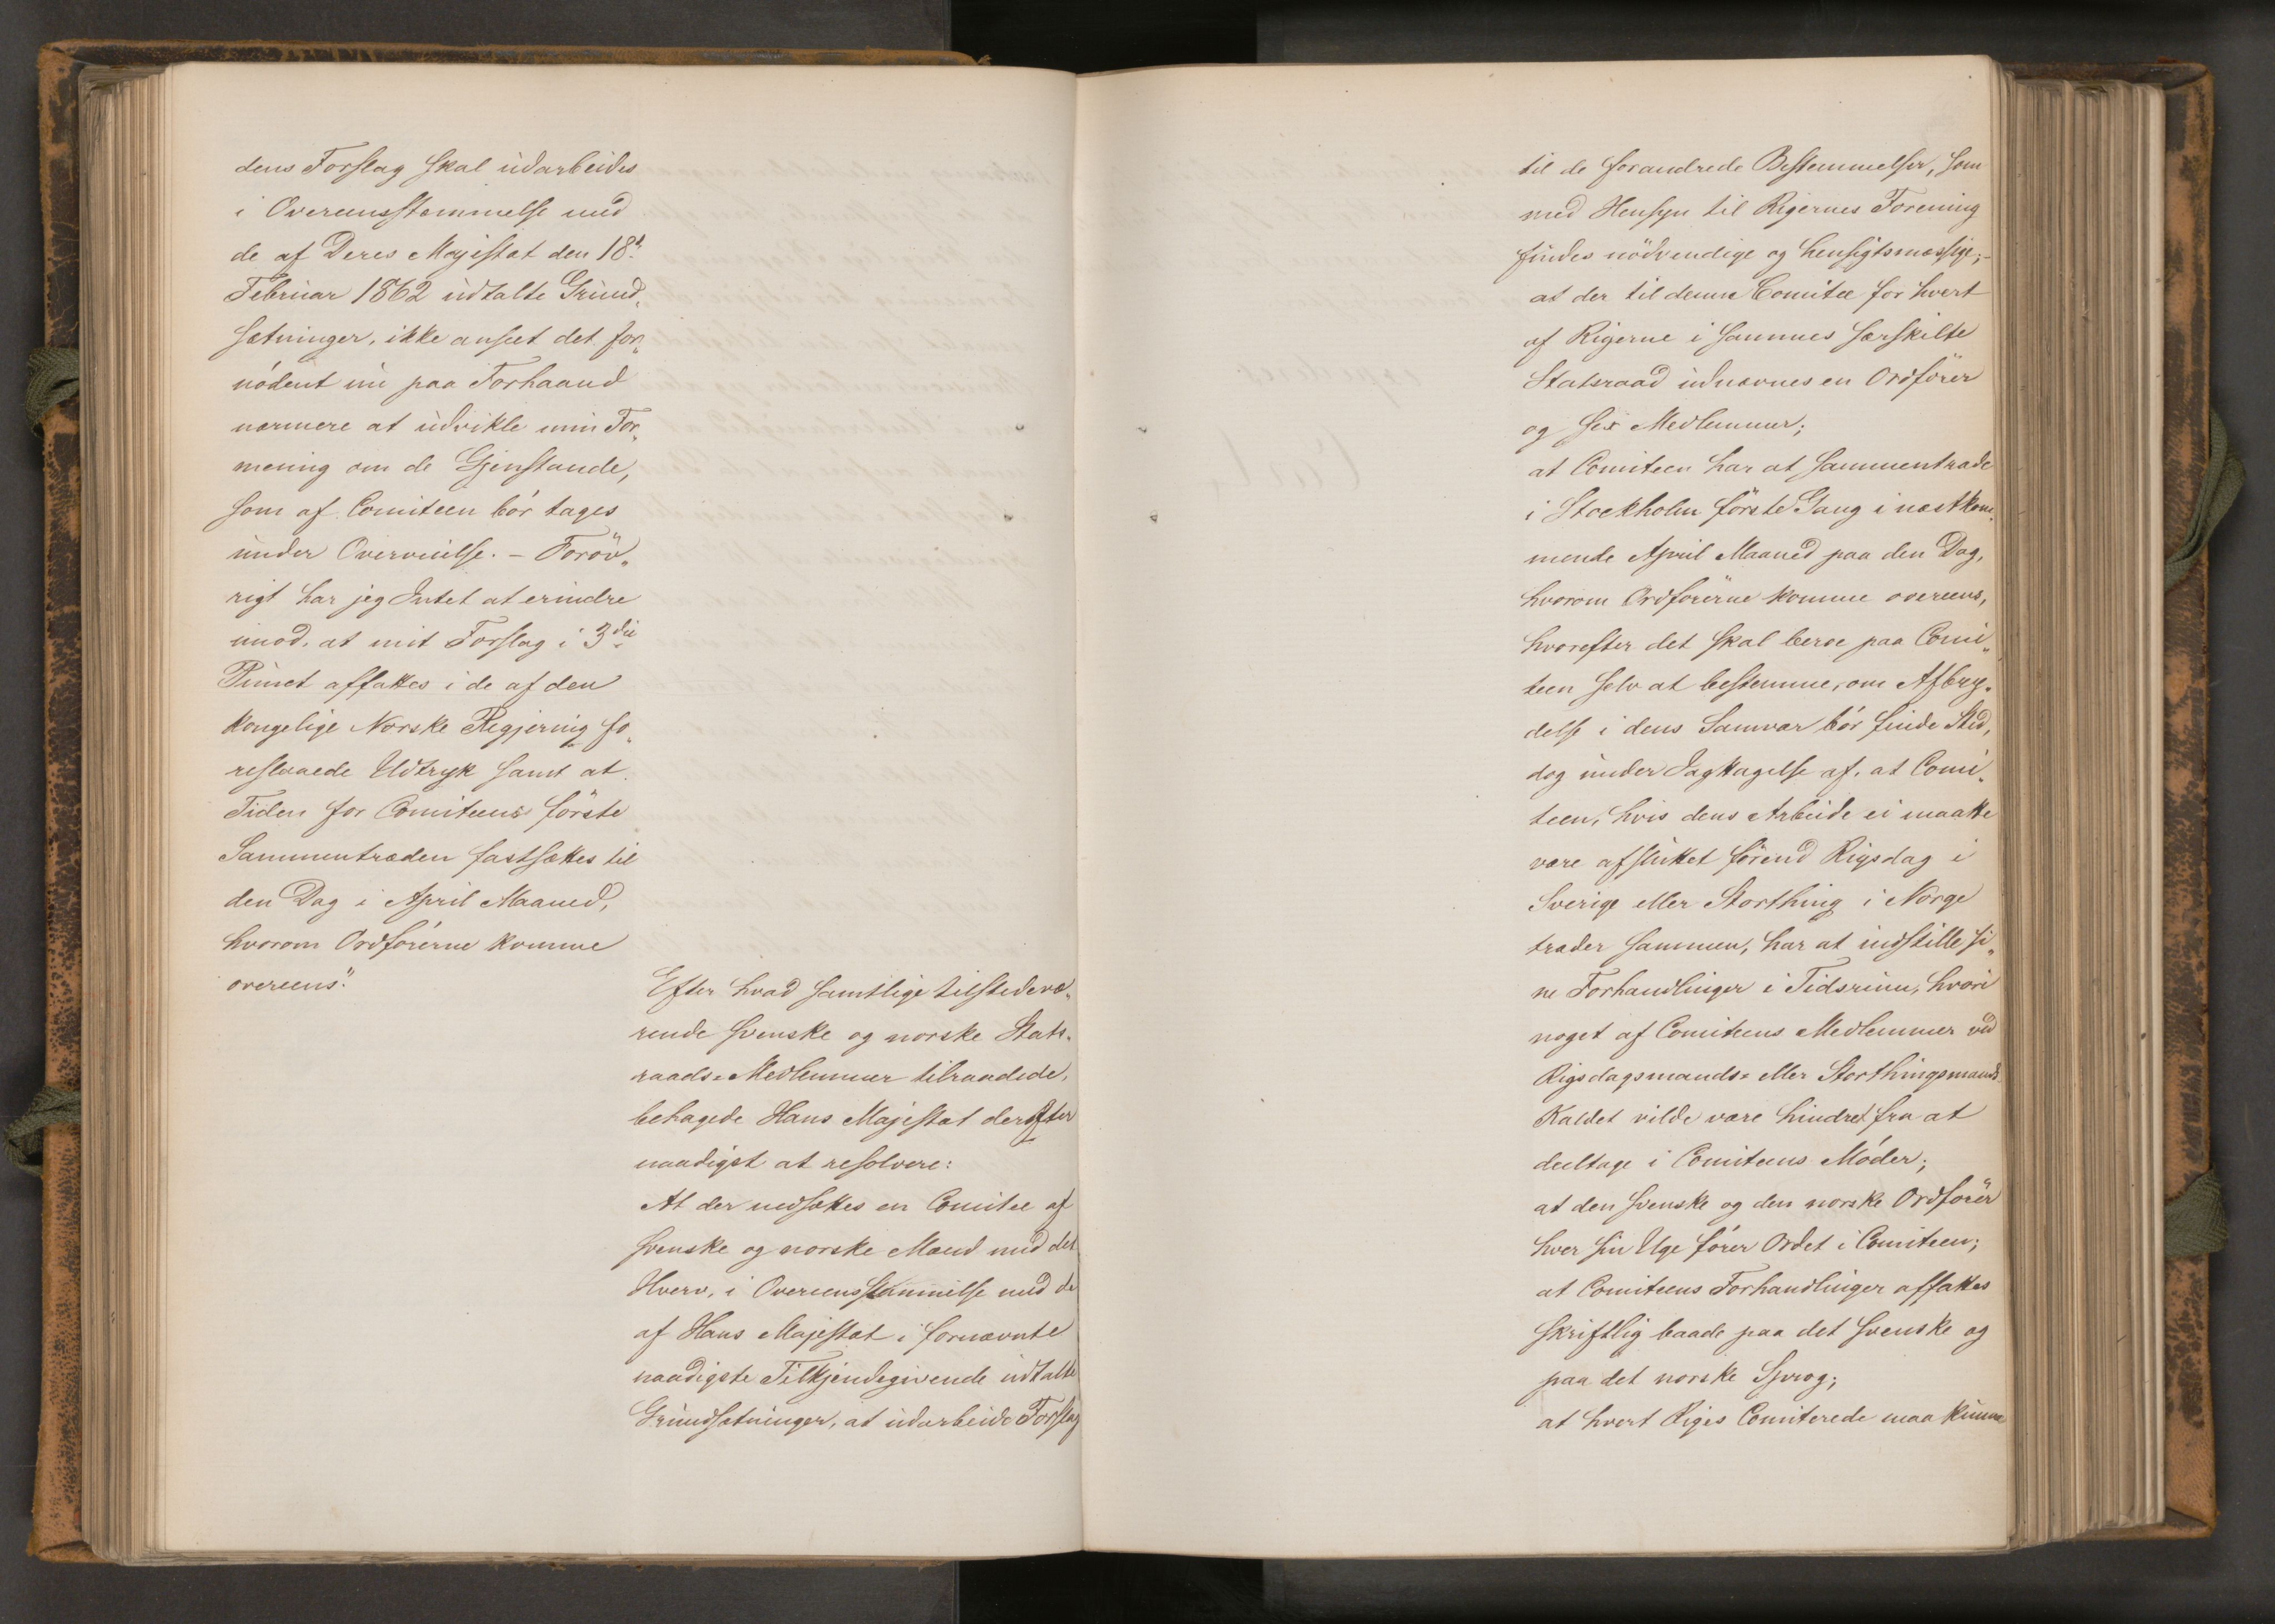 dens Forslag skal udarbeides
i Overeensstemmelse med
de af Deres Majestæt den 18d
Februar 1862 udtalte Grund„
sætninger, ikke anseet det for„
nödent nu paa Forhaand
nærmere at udvikle min For„
mening om de Gjenstande,
som af Comiteen bör tages
under Overveielse. – Foröv„
rigt har jeg Intet at erindre
imod, at mit Forslag i 3die
Punct affattes i de af den
Kongelige Norske Regjering fo„
reslaaede Udtryk samt at
Tiden for Comiteens förste
Sammentræden fastsættes til
den Dag i April Maaned,
hvorom Ordförerne komme
overeens."
Efter hvad samtlige tilstedevæ„
rende svenske og norske Stats„
raads-Medlemmer tilraadede,
behagede Hans Majestæt derefter
naadigst at resolvere:
At der nedsættes en Comitee af
svenske og norske Mænd med det
Hverv, i Overeensstemmelse med de
af Hans Majestæt i fornævnte
naadigste Tilkjendegivende udtalte
Grundsætninger, at udarbeide Forslag
til de forandrede Bestemmelser, som
med Hensyn til Rigernes Forening
findes nödvendige og hensigtsmæssige;–
at der til denne Comitee for hvert
af Rigerne i sammes særskilte
Statsraad udnævnes en Ordförer
og sex Medlemmer;
at Comiteen har at sammentræde
i Stockholm förste Gang i næstkom„
mende April Maaned paa den Dag,
hvorom Ordförerne komme overeens,
hvorefter det skal beroe paa Comi„
teen selv at bestemme, om Afbry„
delse i dens Samvær bör finde Sted,
dog under Iagttagelse af, at Comi„
teen, hvis dens Arbeide ei maatte
være afsluttet förend Rigsdag i
Sverige eller Storthing i Norge
træder sammen, har at indstille si„
ne Forhandlinger i Tidsrum, hvori
noget af Comiteens Medlemmer ved
Rigsdagsmands- eller Storthingsmands
Kaldet vilde være hindret fra at
deeltage i Comiteens Möder;
at den svenske og den norske Ordförer
hver sin Uge förer Ordet i Comiteen;
at Comiteens Forhandlinger affattes
skriftlig baade paa det svenske og
paa det norske Sprog;
at hvert Riges Comiterede maa kunne